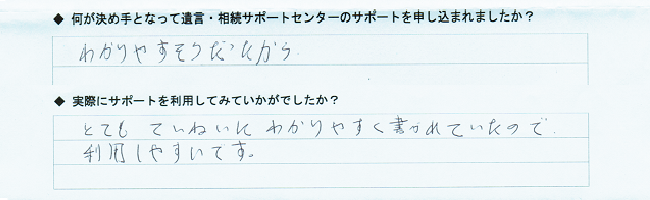 ◆ 何が決め手となって遺言・相続サポートセンターのサポートを申し込まれましたか？
わかりやすそうだったから
◆ 実際にサポートを利用してみていかがでしたか？
とても ていねいに わかりやすく書かれていたので
利用しやすいです。